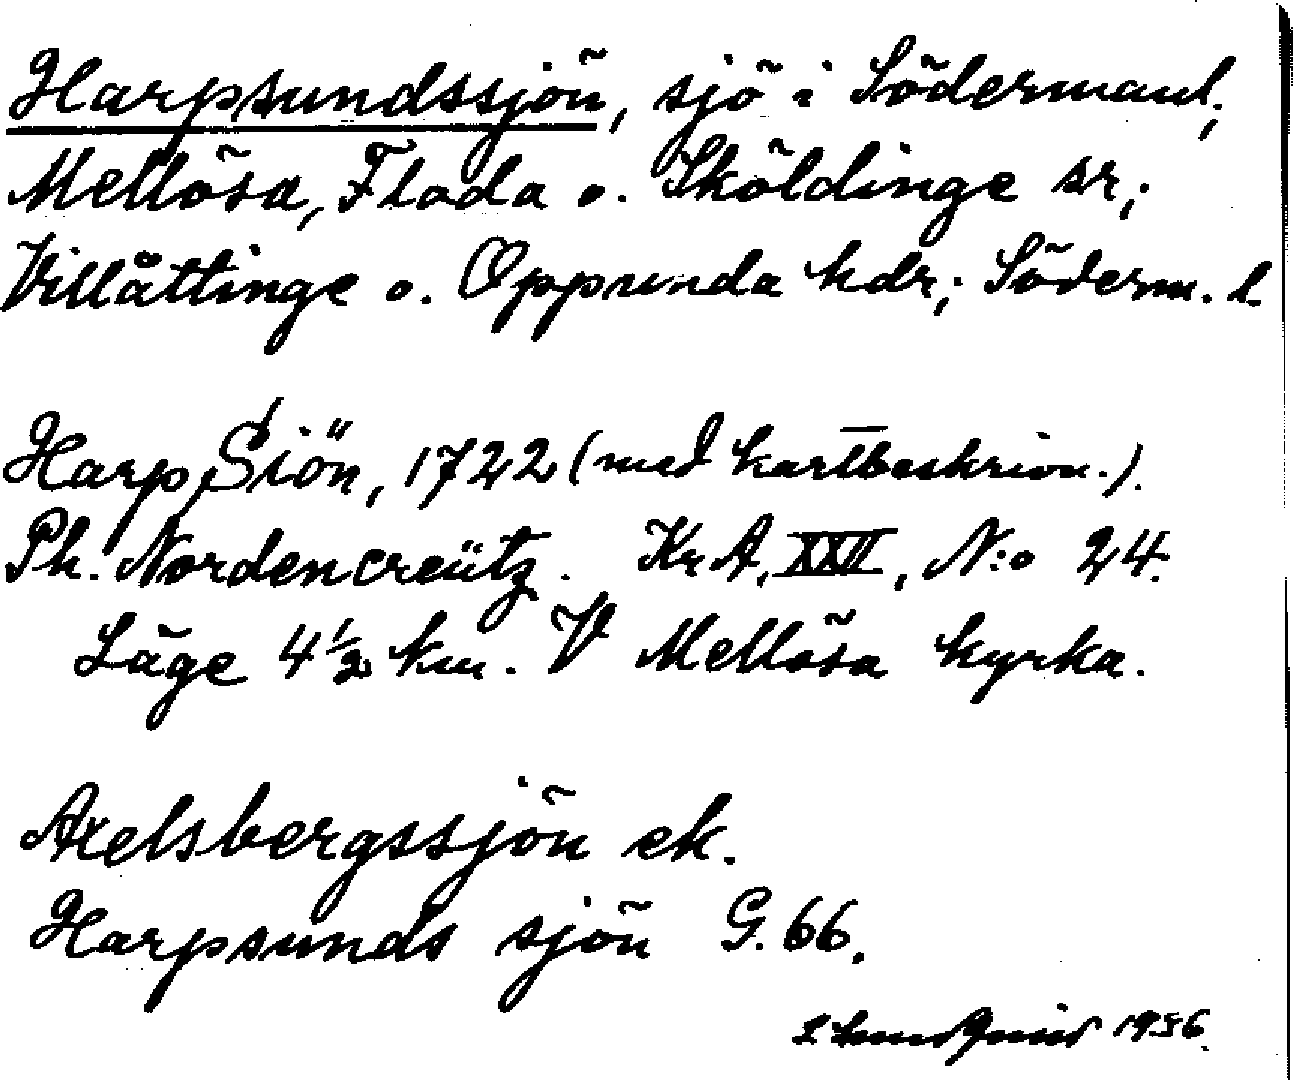 Harpsundssjön, sjö i Södermanl;
Mellösa, Floda o. Sköldinge snr;
Villåttinge o. Oppunda hdr; Söderm. l.
Harp Siön, 1722 (med kartbeskrivn.).
Ph. Nordencreütz. KrA, XXII, N:o 24.
Läge 4 1/2 km. V Mellösa kyrka.
Axelsbergssjön ek.
Harpsunds sjön G. 66.
1956